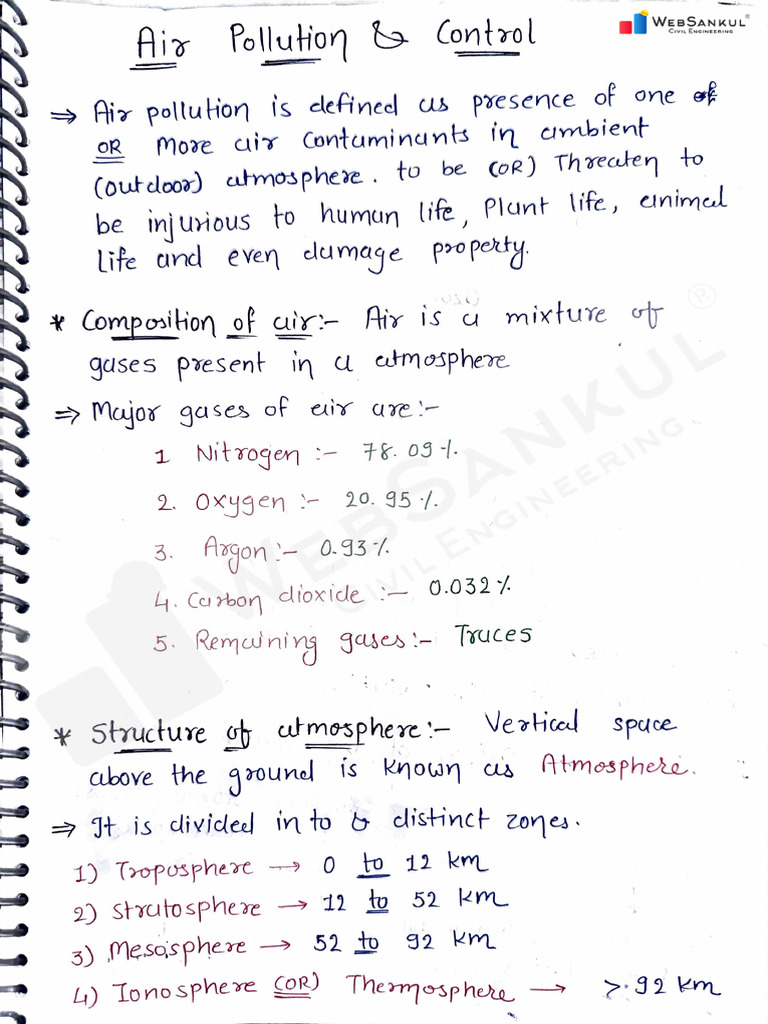 WEBSANKUL®
CIVIL ENGINEERING
Air Pollution & Control
⇒ Air pollution is defined as presence of one
OR More air Contaminants in ambient
(outdoor) atmosphere. to be (OR) Threaten to
be injurious to human life, Plant life, animal
life and even damage property.
* Composition of air:- Air is a mixture of
gases present in a atmosphere
⇒ Major gases of air are:-
1 Nitrogen :- 78.09%
2. Oxygen :- 20.95%
3. Argon :- 0.93%
4. Carbon dioxide :- 0.032%
5. Remaining gases :- Traces
* Structure of atmosphere:- Vertical space
above the ground is known as Atmosphere.
⇒ It is divided in to distinct zones.
1) Troposphere → 0 to 12 km
2) Stratosphere → 12 to 52 km
3) Mesosphere → 52 to 92 km
4) Ionosphere (OR) Thermosphere → >92 km
WEBSANKUL®
CIVIL ENGINEERING